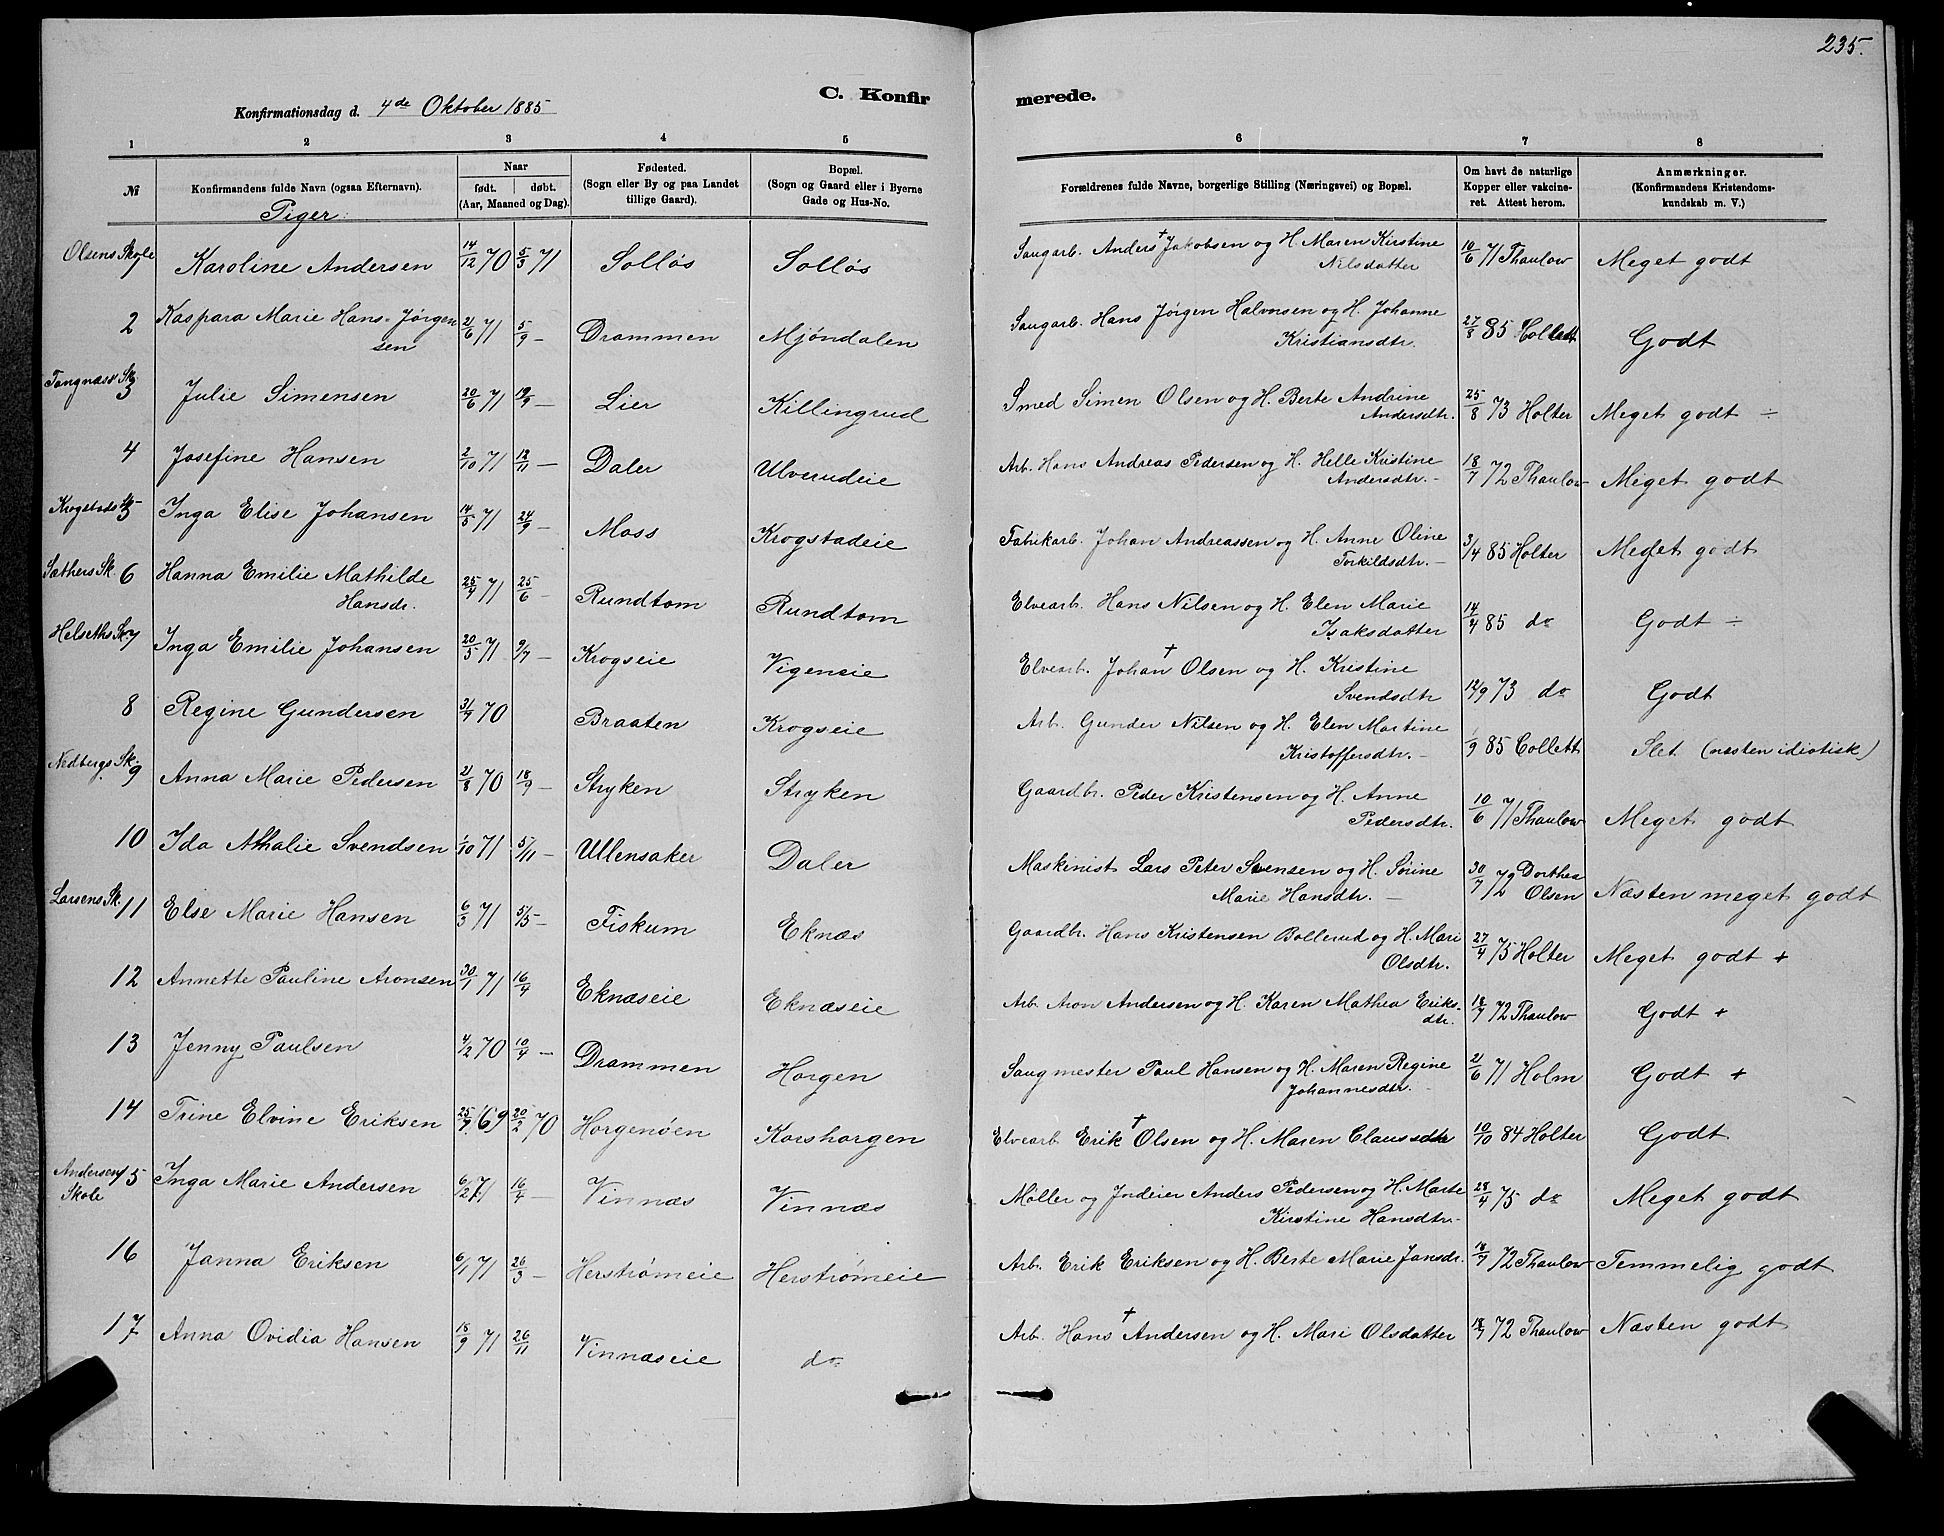 235.
C. Konfirmerede.
Konfirmationsdag d. 4de Oktober 1885
1 2 3 4 5 6 7 8
№ | Konfirmandens fulde Navn (ogsaa Efternavn). | Naar født. | døbt. (Aar, Maaned og Dag). | Fødested. (Sogn eller By og paa Landet tillige Gaard). | Bopæl. (Sogn og Gaard eller i Byerne Gade og Hus-No. | Forældrenes fulde Navne, borgerlige Stilling (Næringsvei) og Bopæl. | Om havt de naturlige Kopper eller vakcineret. Attest herom. | Anmærkninger. (Konfirmandens Kristendomskundskab m. V.)
Piger:
Olsens Skole 1 Karoline Andersen 14/12 70 5/3 71 Solløs Solløs Saugarb. Anders † Jakobsen og H. Maren Kirstine Nilsdatter 10/6 71 Thaulow Meget godt
2 Kaspara Marie Hans-Jørgensen 2/6 71 5/9 — Drammen Mjøndalen Saugarb. Hans Jørgen Halvorsen og H. Johanne Kristiansdtr. 27/8 85 Collett Godt
Tangnæss Sk. 3 Julie Simensen 20/6 71 19/9 — Lier Killingrud Smed Simen Olsen og H. Berte Andrine Andersdtr. 25/8 73 Holter Meget godt ÷
4 Josefine Hansen 2/10 71 12/11 — Daler Ulverudeie Arb. Hans Andreas Pedersen og H. Helle Kristine Andersdtr. — 18/7 72 Thaulow Meget godt
Krogstads Sk. 5 Inga Elise Johansen 14/5 71 24/9 — Moss Krogstadeie Fabrikarb. Johan Andreassen og H. Anne Oline Torkildsdtr. — 3/4 85 Holter Meget godt
Sæthers Sk. 6 Hanna Emilie Mathilde Hansdr. 25/4 71 25/6 — Rundtom Rundtom Elvearb. Hans Nilsen og H. Elen Marie Isaksdatter 14/4 85 do Godt ÷
Helseths Sk. 7 Inga Emilie Johansen 20/5 71 9/7 — Krogseie Vigeneie Elvearb. Johan † Olsen og H. Kristine Svendsdtr 12/9 73 do Godt
8 Regine Gundersen 31/7 70 Braaten Krogseie Arb. Gunder Nilsen og H. Elen Martine Kristoffersdtr. — 1/9 85 Collett Slet (næsten idiotisk)
Nedbergs Sk. 9 Anna Marie Pedersen 21/8 70 18/9 — Stryken Stryken Gaardbr. Peder Kristensen og H. Anne Pedersdtr. 10/6 71 Thaulow Meget godt
10 Ida Athalie Svendsen 1/10 71 5/11 — Ullensaker Daler Maskinist Lars Peter Svensen og H. Sørine Marie Hansdtr. — 30/7 72 Dorthea Olsen Næsten meget godt
Larsens Sk. 11 Else Marie Hansen 6/3 71 5/5 — Fiskum Eknæs Gaardbr. Hans Kristensen Bollerud og H. Mari Olsdtr. 27/4 75 Holter Meget godt +
12 Annette Pauline Aronsen 30/1 71 16/4 Eknæseie Eknæseie Arb. Aron Andersen og H. Karen Mathea Eriksdtr. 18/7 72 Thaulow Godt +
13 Jenny Paulsen 4/2 70 10/4 — Drammen Horgen Saugmester Paul Hansen og H. Maren Regine Johannesdtr. — 2/6 71 Holm Godt +
14 Trine Elvine Eriksen 25/9 69 20/2 70 Horgenøen Korshorgen Elvearb. Erik † Olsen og H. Maren Clausdtr 10/10 84 Holter Godt
Andersens Skole 15 Inga Marie Andersen 6/2 71 16/4 — Vinnæs Vinnæs Møller og Inderier Anders Pedersen og H. Marte Kirstine Hansdtr. 28/4 75 do Meget godt
16 Janna Eriksen 6/1 71 26/3 — Herstrømeie Herstrømeie Arb. Erik Eriksen og H. Berte Marie Jansdr. 18/7 72 Thaulow Temmelig godt
17 Anna Ovidia Hansen 18/9 71 26/11 Vinnæseie do Arb. Hans † Andersen og H. Mari Olsdatter 18/7 72 Thaulow Næsten godt